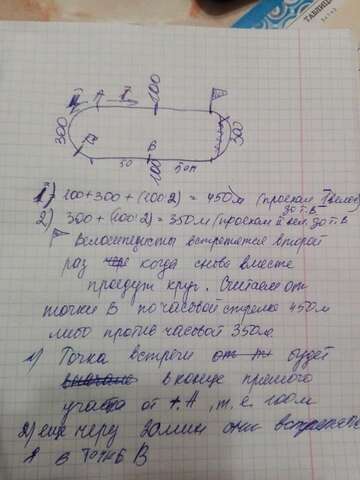 ТАБЛИЦ
II A I 100
300 300
B
50 100 50м
1) 100+300+(100:2) = 450м (проехал I велос.
до т. В
2) 300+(100:2) = 350м (проехал II вел. до т. В
Велосипедисты встретятся второй
раз когда снова вместе
проедут круг. Считаем от
точки В по часовой стрелке 450м
либо против часовой 350м.
1) Точка встречи будет
в конце прямого
участка от т. А, т.е. 100м
2) еще через 20мин они встретятся
в точке В